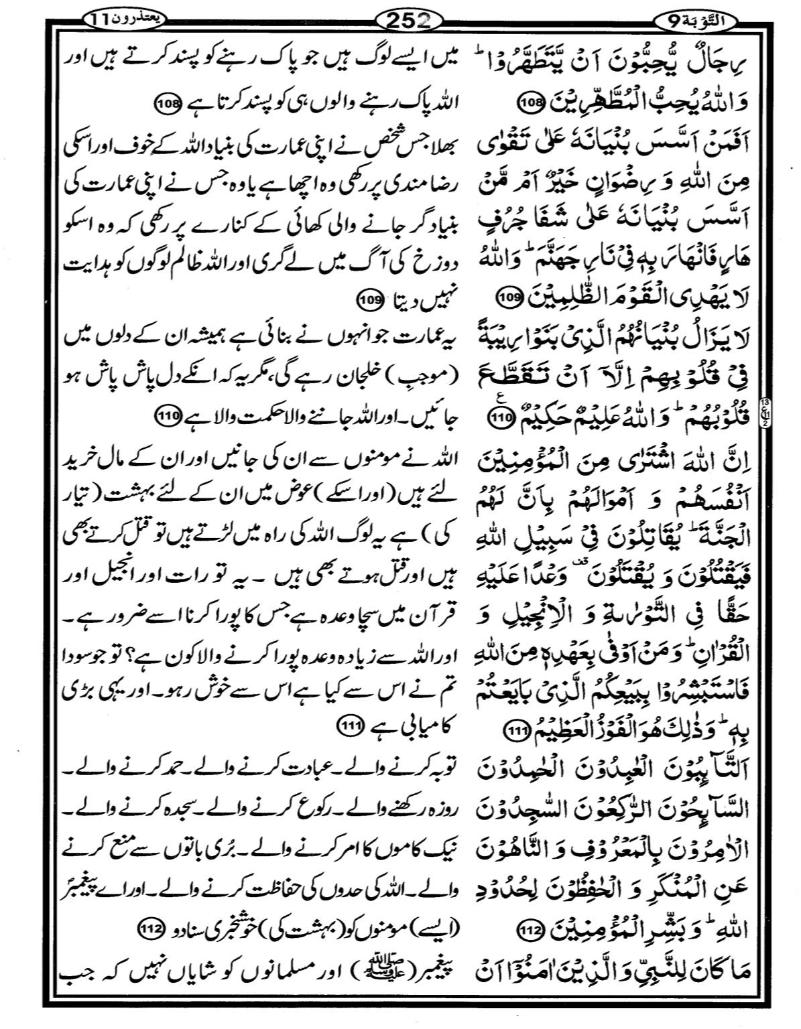 التَّوْبَة 9
252
يعتذرون 11
رِجَالٌ يُّحِبُّوْنَ اَنْ يَّتَطَهَّرُوْا ؕ
وَاللّٰهُ يُحِبُّ الْمُطَّهِّرِيْنَ 108
اَفَمَنْ اَسَّسَ بُنْيَانَهٗ عَلٰى تَقْوٰى
مِنَ اللّٰهِ وَ رِضْوَانٍ خَيْرٌ اَمْ مَّنْ
اَسَّسَ بُنْيَانَهٗ عَلٰى شَفَا جُرُفٍ
هَارٍ فَانْهَارَ بِهٖ فِيْ نَارِ جَهَنَّمَ ؕ وَاللّٰهُ
لَا يَهْدِى الْقَوْمَ الظّٰلِمِيْنَ 109
لَا يَزَالُ بُنْيَانُهُمُ الَّذِيْ بَنَوْا رِيْبَةً
فِيْ قُلُوْبِهِمْ اِلَّاۤ اَنْ تَقَطَّعَ
قُلُوْبُهُمْ ؕ وَاللّٰهُ عَلِيْمٌ حَكِيْمٌ 110 ع
اِنَّ اللّٰهَ اشْتَرٰى مِنَ الْمُؤْمِنِيْنَ
اَنْفُسَهُمْ وَ اَمْوَالَهُمْ بِاَنَّ لَهُمُ
الْجَنَّةَ ؕ يُقَاتِلُوْنَ فِيْ سَبِيْلِ اللّٰهِ
فَيَقْتُلُوْنَ وَ يُقْتَلُوْنَ ۫ وَعْدًا عَلَيْهِ
حَقًّا فِى التَّوْرٰىةِ وَ الْاِنْجِيْلِ وَ
الْقُرْاٰنِ ؕ وَمَنْ اَوْفٰى بِعَهْدِهٖ مِنَ اللّٰهِ
فَاسْتَبْشِرُوْا بِبَيْعِكُمُ الَّذِيْ بَايَعْتُمْ
بِهٖ ؕ وَذٰلِكَ هُوَ الْفَوْزُ الْعَظِيْمُ 111
اَلتَّآىِٕبُوْنَ الْعٰبِدُوْنَ الْحٰمِدُوْنَ
السَّآىِٕحُوْنَ الرّٰكِعُوْنَ السّٰجِدُوْنَ
الْاٰمِرُوْنَ بِالْمَعْرُوْفِ وَ النَّاهُوْنَ
عَنِ الْمُنْكَرِ وَ الْحٰفِظُوْنَ لِحُدُوْدِ
اللّٰهِ ؕ وَ بَشِّرِ الْمُؤْمِنِيْنَ 112
مَا كَانَ لِلنَّبِيِّ وَالَّذِيْنَ اٰمَنُوْۤا اَنْ
میں ایسے لوگ ہیں جو پاک رہنے کو پسند کرتے ہیں اور
اللہ پاک رہنے والوں ہی کو پسند کرتا ہے 108
بھلا جس شخص نے اپنی عمارت کی بنیاد اللہ کے خوف اور اسکی
رضا مندی پر رکھی وہ اچھا ہے یا وہ جس نے اپنی عمارت کی
بنیاد گر جانے والی کھائی کے کنارے پر رکھی کہ وہ اسکو
دوزخ کی آگ میں لے گری اور اللہ ظالم لوگوں کو ہدایت
نہیں دیتا 109
یہ عمارت جو انہوں نے بنائی ہے ہمیشہ ان کے دلوں میں
(موجب) خلجان رہے گی، مگر یہ کہ انکے دل پاش پاش ہو
جائیں۔ اور اللہ جاننے والا حکمت والا ہے 110
اللہ نے مومنوں سے ان کی جانیں اور ان کے مال خرید
لئے ہیں (اور اسکے) عوض میں ان کے لئے بہشت (تیار
کی) ہے یہ لوگ اللہ کی راہ میں لڑتے ہیں تو قتل کرتے بھی
ہیں اور قتل ہوتے بھی ہیں ۔ یہ تورات اور انجیل اور
قرآن میں سچا وعدہ ہے جس کا پورا کرنا اسے ضرور ہے۔
اور اللہ سے زیادہ وعدہ پورا کرنے والا کون ہے؟ تو جو سودا
تم نے اس سے کیا ہے اس سے خوش رہو۔ اور یہی بڑی
کامیابی ہے 111
توبہ کرنے والے۔ عبادت کرنے والے۔ حمد کرنے والے۔
روزہ رکھنے والے۔ رکوع کرنے والے۔ سجدہ کرنے والے۔
نیک کاموں کا امر کرنے والے۔ بُری باتوں سے منع کرنے
والے۔ اللہ کی حدوں کی حفاظت کرنے والے۔ اور اے پیغمبرؐ
(ایسے) مومنوں کو (بہشت کی) خوشخبری سنا دو 112
پیغمبر (ﷺ) اور مسلمانوں کو شایاں نہیں کہ جب